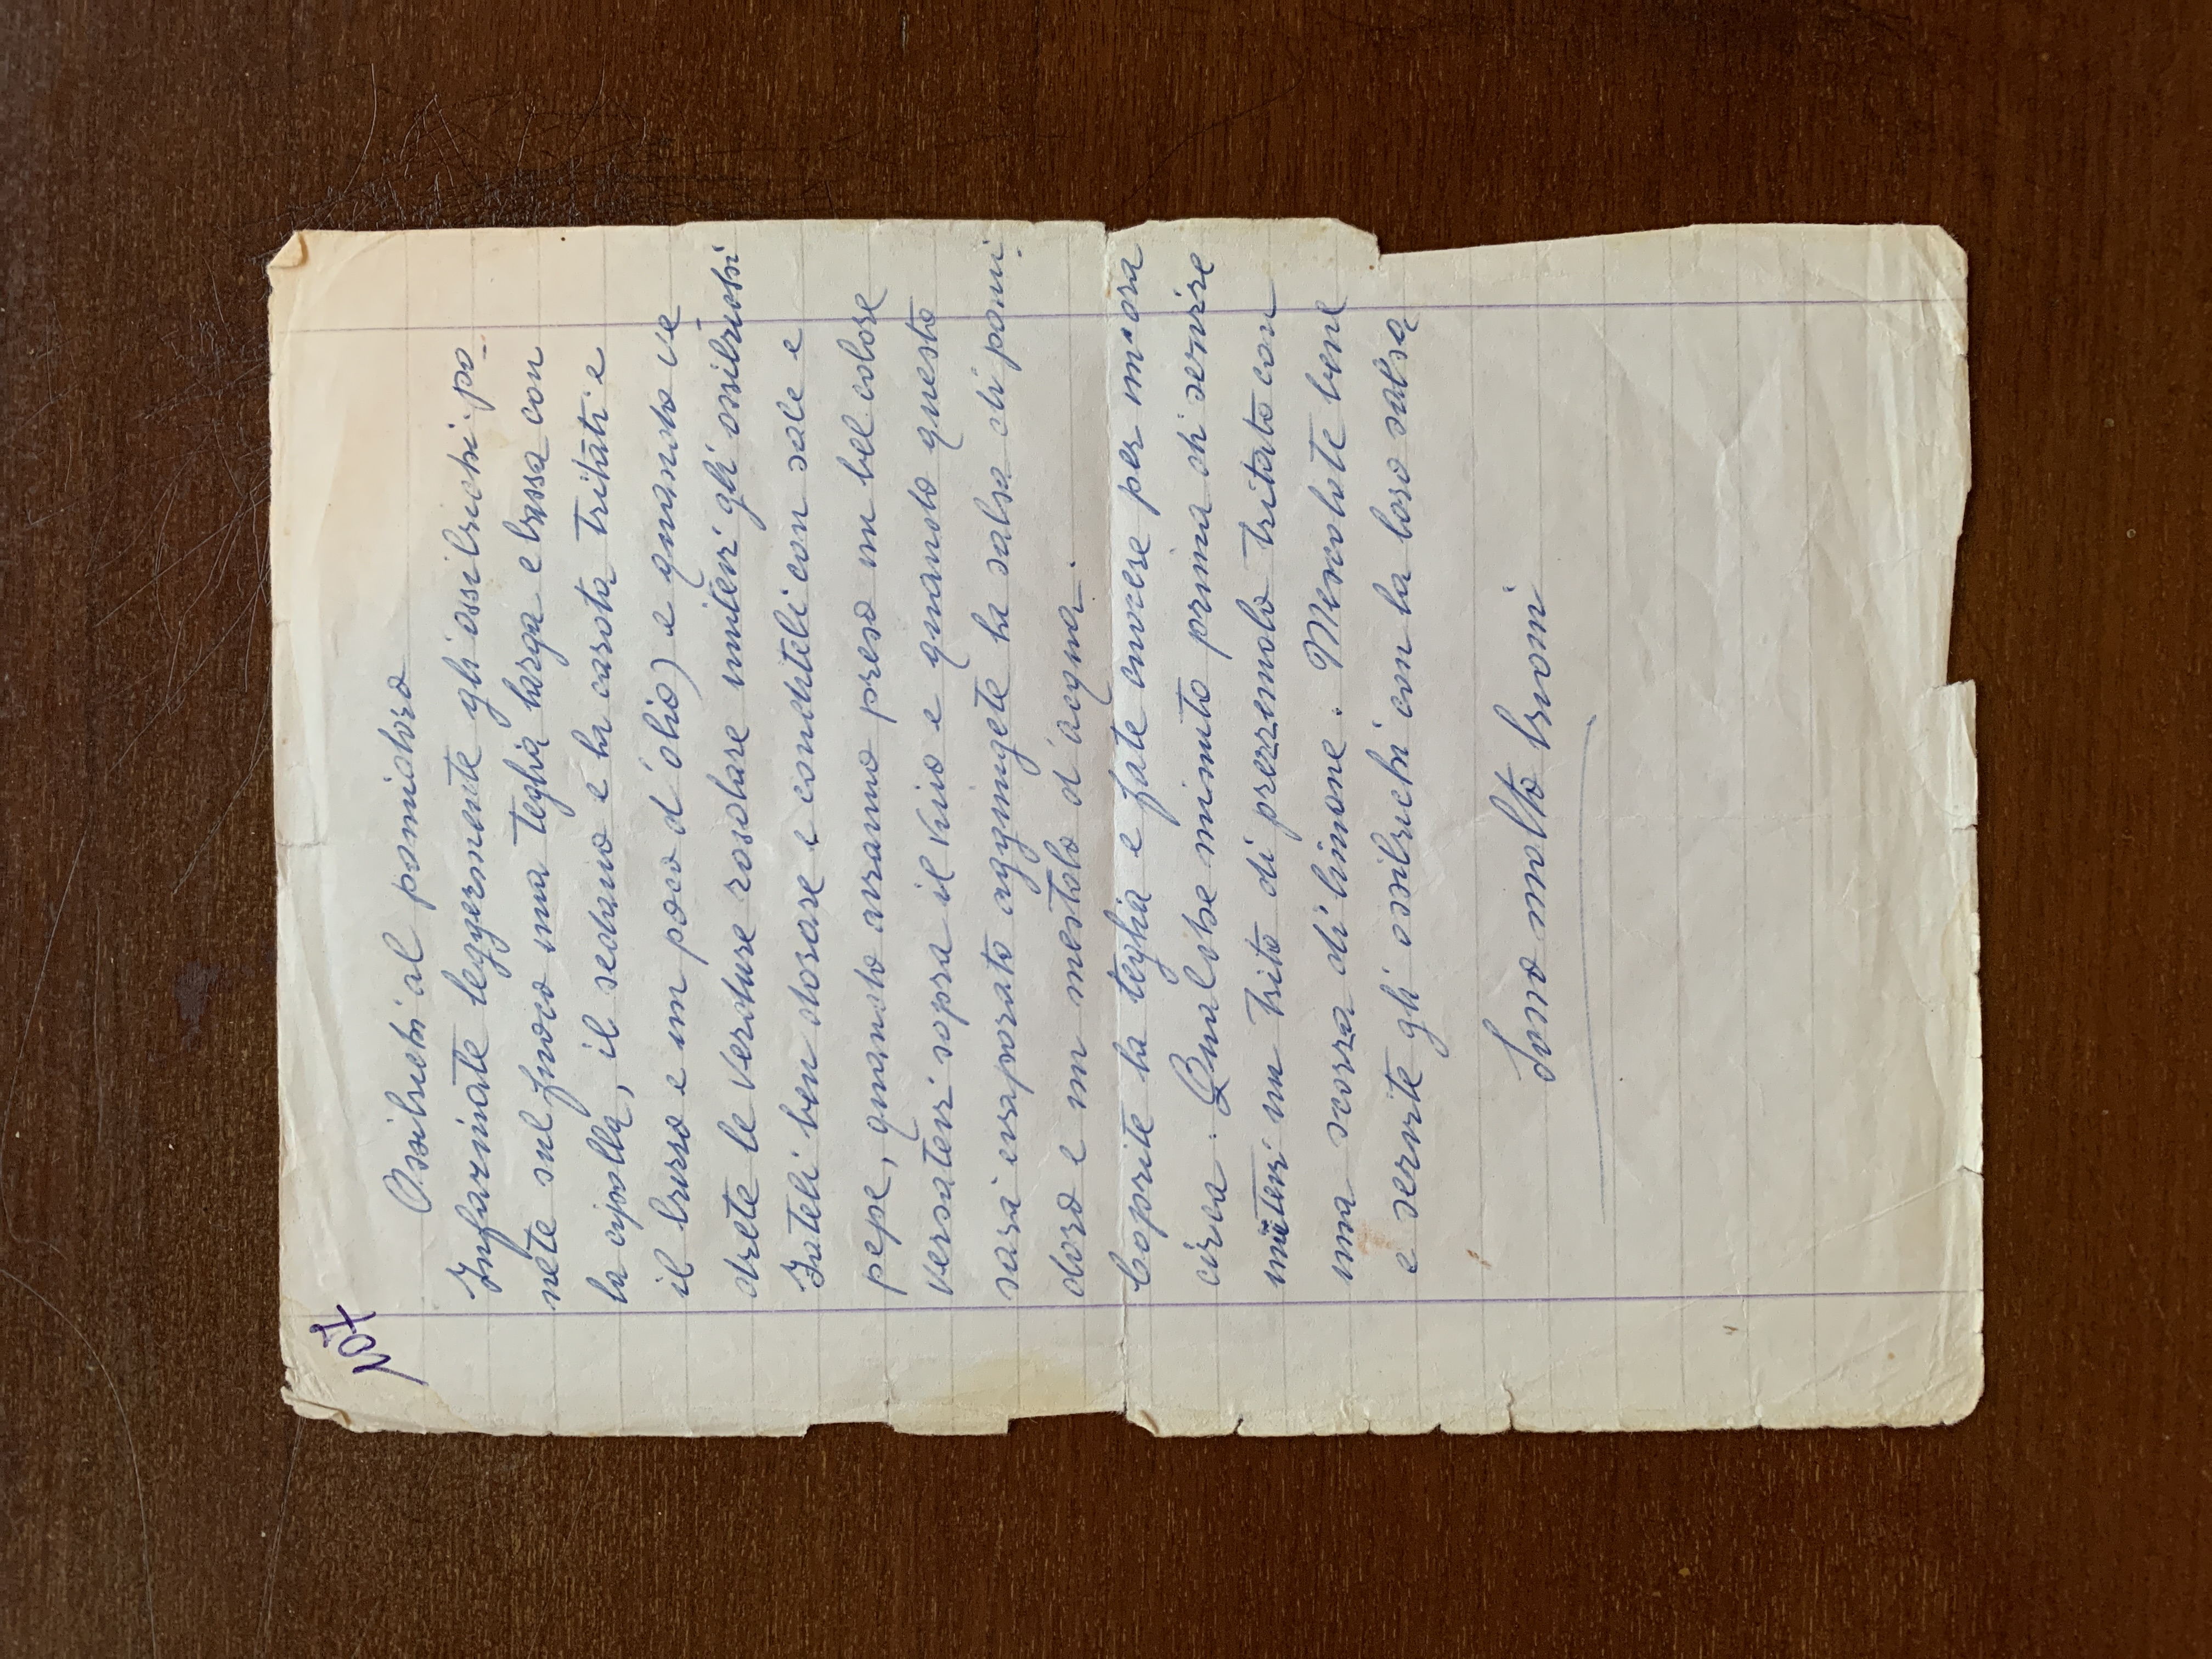 107
Ossibuchi al pomidoro
Infarinate leggermente gli ossibuchi. po-
nete sul fuoco una teglia larga e bassa con
la cipolla, il sedano e la carota tritati e
il burro e un poco d'olio) e quando ve-
drete le verdure rosolare unitevi gli ossibuchi
Fateli ben dorare e conditeli con sale e
pepe, quando avranno preso un bel colore
versatevi sopra il vino e quando questo
sarà evaporato aggiungete la salsa di pomi-
doro e un mestolo d'acqua.
Coprite la teglia e fate cuocere per un'ora
circa. Qualche minuto prima di servire
unitevi un trito di prezzemolo tritato con
una scorza di limone. Mescolate bene
e servite gli ossibuchi con la loro salsa
Sono molto buoni